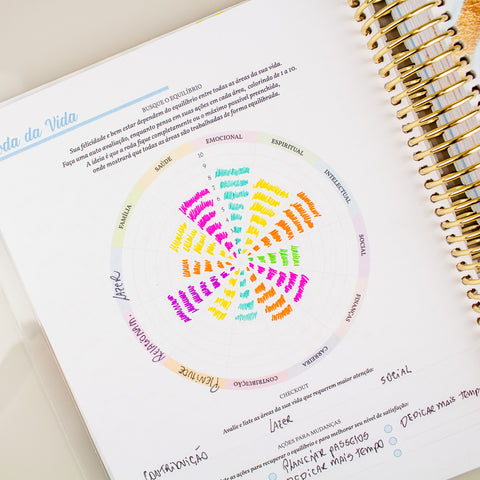 da da Vida
BUSQUE O EQUILÍBRIO
Sua felicidade e bem estar dependem do equilíbrio entre todas as áreas da sua vida.
Faça uma auto avaliação, enquanto pensa em suas ações em cada área, colorindo de 1 a 10.
A ideia é que a roda fique completamente ou o máximo possível preenchida,
onde mostrará que todas as áreas são trabalhadas de forma equilibrada.
EMOCIONAL
ESPIRITUAL
INTELECTUAL
SOCIAL
FINANÇAS
CARREIRA
CONTRIBUIÇÃO
PLENITUDE
RELACIONAM.
LAZER
FAMÍLIA
SAÚDE
10
9
8
7
6
5
4
CHECKOUT
Avalie e liste as áreas da sua vida que requerem maior atenção:
LAZER
SOCIAL
AÇÕES PARA MUDANÇAS
as ações para recuperar o equilíbrio e para melhorar seu nível de satisfação:
CONTRIBUIÇÃO
PLANEJAR PASSEIOS
DEDICAR MAIS TEMPO
DEDICAR MAIS TEMPO